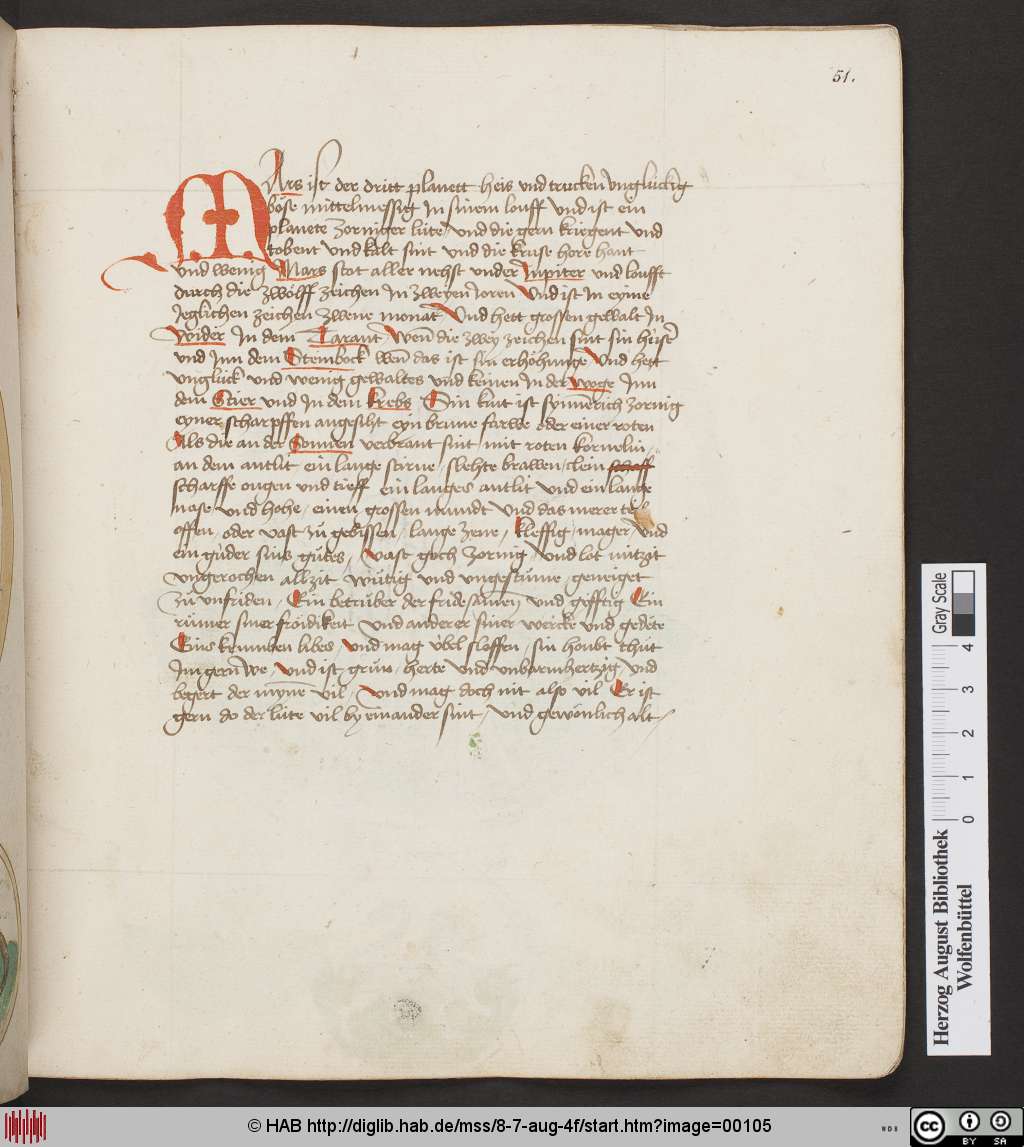 51.
MArs ist der dritt planett heis vnd trucken vngluckig
böse mittelmessig In sinem louff vnd ist ein
planete zorniger lüte / vnd die gern kriegent vnd
tobent vnd kalt sint vnd die kruse hore hant
vnd wenig Mars stat aller nehst vnder Jupiter vnd loufft
durch die zwölff zeichen In zweyen Joren Vnd ist In eyme
Jeglichen zeichen zwene monat Vnd hett grossen gewalt In
Wider In dem Tarant / Wen die zwey zeichen sint sin hüser
vnd Inn dem Steinbock wen das ist sin erhöhunge Vnd hett
vnglück vnd wenig gewaltes vnd keinen In der woge Inn
dem Stier vnd In dem Krebs / Sin kint ist synnerich zornig
eyner scharpffen angesiht eyn brune farwe oder einer roten
Als die an der Sonnen verbrant sint mit roten kornelin /
an dem antlit ein lange stirne / slehte brawen / clein schaff
scharffe ougen vnd tieff ein langes antlit vnd ein lange
nase vnd hohe / einen grossen mundt vnd das merer teil
offen / oder vast zü gebissen / lange zene / Kleffig / mager / vnd
ein güder sins gütes / vast goch zornig / vnd lot mitzit
vngerochen allzit wütig vnd vngestüme / geneiget
zü vnfriden / Ein betrüber der fridesamen / vnd gifftig Ein
rümer siner fröidikeit vnd anderer siner wercke vnd gedete
Eins krummen libes / vnd mag übel sloffen / sin houbt thüt
Im gern we / vnd ist grün / herte vnd vnbarmhertzig vnd
begert der mynne vil / vnd mag doch nit also vil Er ist
gern do der lüte vil by einander sint / vnd gewonlich alt /
Gray Scale
0 1 2 3 4
Herzog August Bibliothek
Wolfenbüttel
© HAB http://diglib.hab.de/mss/8-7-aug-4f/start.htm?image=00105
WDB
cc BY SA